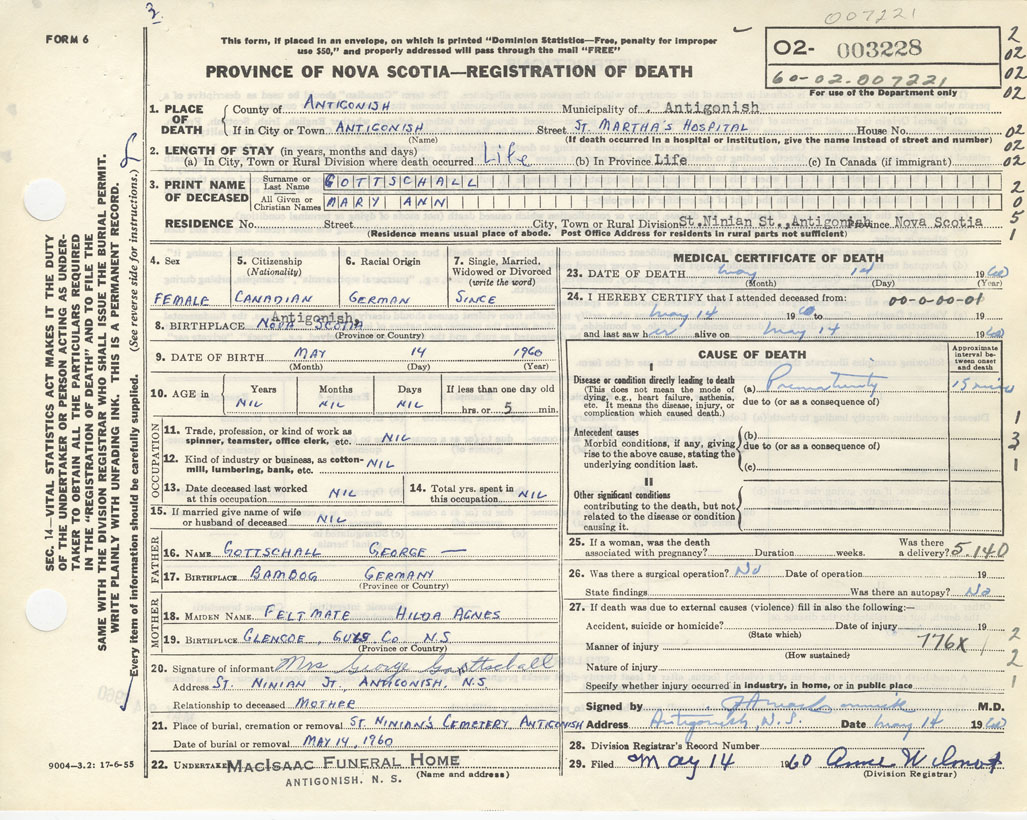 007221
3.
FORM 6
This form, if placed in an envelope, on which is printed "Dominion Statistics—Free, penalty for improper
use $50," and properly addressed will pass through the mail "FREE"
PROVINCE OF NOVA SCOTIA—REGISTRATION OF DEATH
02- 003228
60-02-007221
For use of the Department only
2
02
02
02
1. PLACE OF DEATH
County of ANTIGONISH Municipality of Antigonish
If in City or Town ANTIGONISH Street ST. MARTHA'S HOSPITAL House No. 02
(Name) (If death occurred in a hospital or institution, give the name instead of street and number) 02
2. LENGTH OF STAY (in years, months and days)
(a) In City, Town or Rural Division where death occurred Life (b) In Province Life (c) In Canada (if immigrant) 02
3. PRINT NAME OF DECEASED
Surname or Last Name GOTTSCHALL 2
All Given or Christian Names MARY ANN 0
RESIDENCE No. Street City, Town or Rural Division St. Ninian St., Antigonish Province Nova Scotia 5
(Residence means usual place of abode. Post Office Address for residents in rural parts not sufficient) 1
SEC. 14—VITAL STATISTICS ACT MAKES IT THE DUTY
OF THE UNDERTAKER OR PERSON ACTING AS UNDER-
TAKER TO OBTAIN ALL THE PARTICULARS REQUIRED
IN THE "REGISTRATION OF DEATH" AND TO FILE THE
SAME WITH THE DIVISION REGISTRAR WHO SHALL ISSUE THE BURIAL PERMIT.
WRITE PLAINLY WITH UNFADING INK. THIS IS A PERMANENT RECORD.
Every item of information should be carefully supplied. (See reverse side for instructions.)
4. Sex 5. Citizenship 6. Racial Origin 7. Single, Married,
(Nationality) Widowed or Divorced
(write the word)
FEMALE CANADIAN GERMAN SINCE
Antigonish,
8. BIRTHPLACE NOVA SCOTIA
(Province or Country)
9. DATE OF BIRTH MAY 14 1960
(Month) (Day) (Year)
10. AGE in Years Months Days If less than one day old
NIL NIL NIL hrs. or 5 min.
OCCUPATION
11. Trade, profession, or kind of work as
spinner, teamster, office clerk, etc. NIL
12. Kind of industry or business, as cotton-
mill, lumbering, bank, etc. NIL
13. Date deceased last worked
at this occupation NIL
14. Total yrs. spent in
this occupation NIL
15. If married give name of wife
or husband of deceased NIL
FATHER
16. NAME GOTTSCHALL GEORGE —
17. BIRTHPLACE BAMBOG GERMANY
(Province or Country)
MOTHER
18. MAIDEN NAME FELTMATE HILDA AGNES
19. BIRTHPLACE GLENCOE, GUYS CO N.S
(Province or Country)
20. Signature of informant Mrs George Gottschall
Address ST. NINIAN ST, ANTIGONISH, N.S.
Relationship to deceased MOTHER
21. Place of burial, cremation or removal ST. NINIAN'S CEMETERY ANTIGONISH
Date of burial or removal MAY 14, 1960
22. UNDERTAKER MACISAAC FUNERAL HOME
ANTIGONISH, N. S. (Name and address)
9004—3.2: 17-6-55
MEDICAL CERTIFICATE OF DEATH
23. DATE OF DEATH May 1960
(Month) (Day) (Year)
24. I HEREBY CERTIFY that I attended deceased from: 00-0-00-01
May 14 1960 to 19
and last saw her alive on May 14 1960
CAUSE OF DEATH
Approximate interval between onset and death
I
Disease or condition directly leading to death
(This does not mean the mode of
dying, e.g., heart failure, asthenia,
etc. It means the disease, injury, or
complication which caused death.)
(a) Prematurity 15 mins
due to (or as a consequence of)
Antecedent causes
Morbid conditions, if any, giving
rise to the above cause, stating the
underlying condition last.
(b)
due to (or as a consequence of)
(c)
1
3
1
II
Other significant conditions
contributing to the death, but not
related to the disease or condition
causing it.
25. If a woman, was the death Was there
associated with pregnancy? Duration weeks. a delivery? 5.140
26. Was there a surgical operation? No Date of operation 19
State findings Was there an autopsy? No
27. If death was due to external causes (violence) fill in also the following:—
Accident, suicide or homicide? Date of injury 19 2
(State which)
Manner of injury 776X 2
(How sustained)
Nature of injury 1
Specify whether injury occurred in industry, in home, or in public place
Signed by M.D.
Address Antigonish, N.S. Date May 14 1960
28. Division Registrar's Record Number
29. Filed May 14 1960 Anne Wilmot
(Division Registrar)